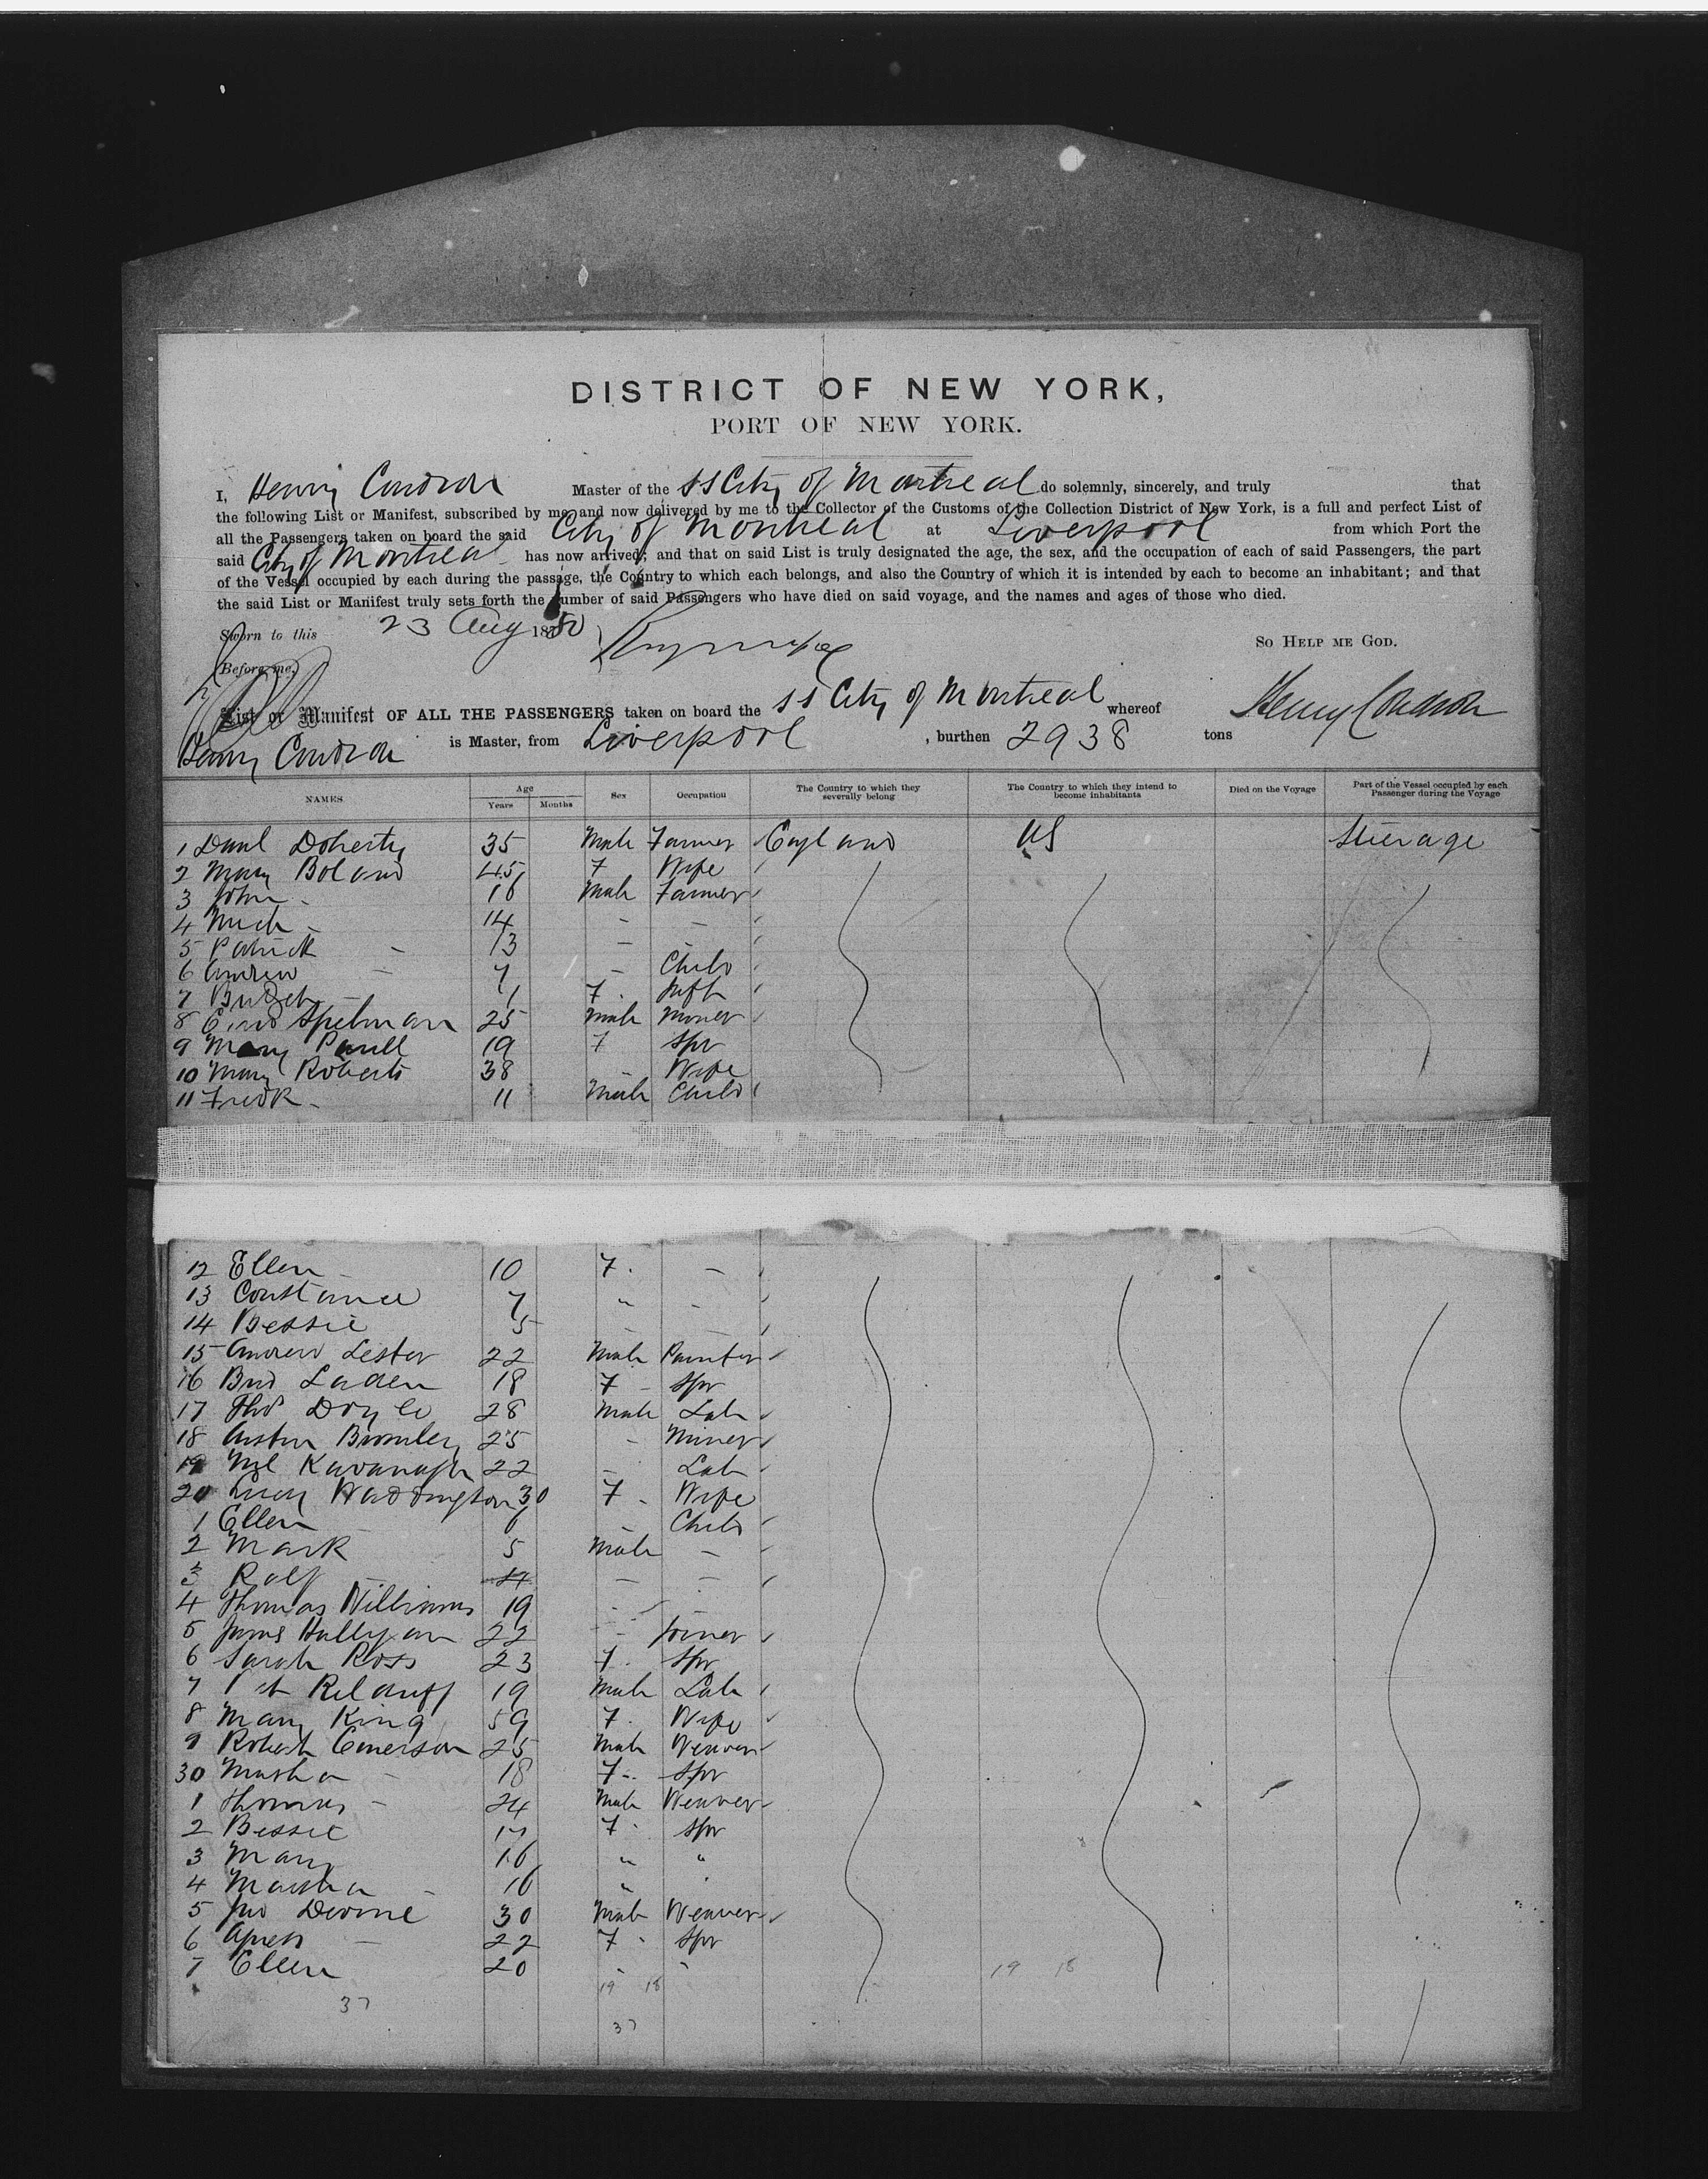 DISTRICT OF NEW YORK,
PORT OF NEW YORK.
I, Henry Condron Master of the SS City of Montreal do solemnly, sincerely, and truly that
the following List or Manifest, subscribed by me and now delivered by me to the Collector of the Customs of the Collection District of New York, is a full and perfect List of
all the Passengers taken on board the said City of Montreal at Liverpool from which Port the
said City of Montreal has now arrived; and that on said List is truly designated the age, the sex, and the occupation of each of said Passengers, the part
of the Vessel occupied by each during the passage, the Country to which each belongs, and also the Country of which it is intended by each to become an inhabitant; and that
the said List or Manifest truly sets forth the number of said Passengers who have died on said voyage, and the names and ages of those who died.
Sworn to this 23 Aug 1880
So Help me God.
Before me,
List or Manifest OF ALL THE PASSENGERS taken on board the SS City of Montreal whereof Henry Condron
Henry Condron is Master, from Liverpool , burthen 2938 tons
NAMES Age Years Months Sex Occupation The Country to which they severally belong The Country to which they intend to become inhabitants Died on the Voyage Part of the Vessel occupied by each Passenger during the Voyage
1 Danl Doherty 35 Male Farmer England US Steerage
2 Mary Boland 45 F Wife
3 John - 16 Male Farmer
4 Mich - 14 - -
5 Patrick - 13 - -
6 Andrew - 7 - Child
7 Bridget - 1 F Inft
8 Spelman 25 Male Miner
9 Mary 19 F Spr
10 Mary Roberts 38 Wife
11 Fredk - 11 Male Child
12 Ellen - 10 F -
13 Constance 7 " -
14 Bessie 5 - -
15 Andrew Lester 22 Male Painter
16 Brid Laden 18 F Spr
17 Thos Doyle 28 Male Lab
18 Austin Bromley 25 - Miner
19 Ml Kavanagh 22 - Lab
20 Lucy Waddington 30 F Wife
1 Ellen - - Child
2 Mark 5 Male -
3 Ralf - 4 - -
4 Thomas Williams 19 -
5 James Hallyan 22 - Joiner
6 Sarah Ross 23 F Spr
7 19 Male Lab
8 Mary King 59 F Wife
9 Robert Emerson 25 Male Weaver
30 Martha - 18 F Spr
1 Thomas - 24 Male Weaver
2 Bessie 17 F Spr
3 Mary 16 " "
4 Martha - 16 "
5 Jno Devine 30 Male Weaver
6 Agness - 22 F Spr
7 Ellen 20 - "
19 18 19 18
37
37